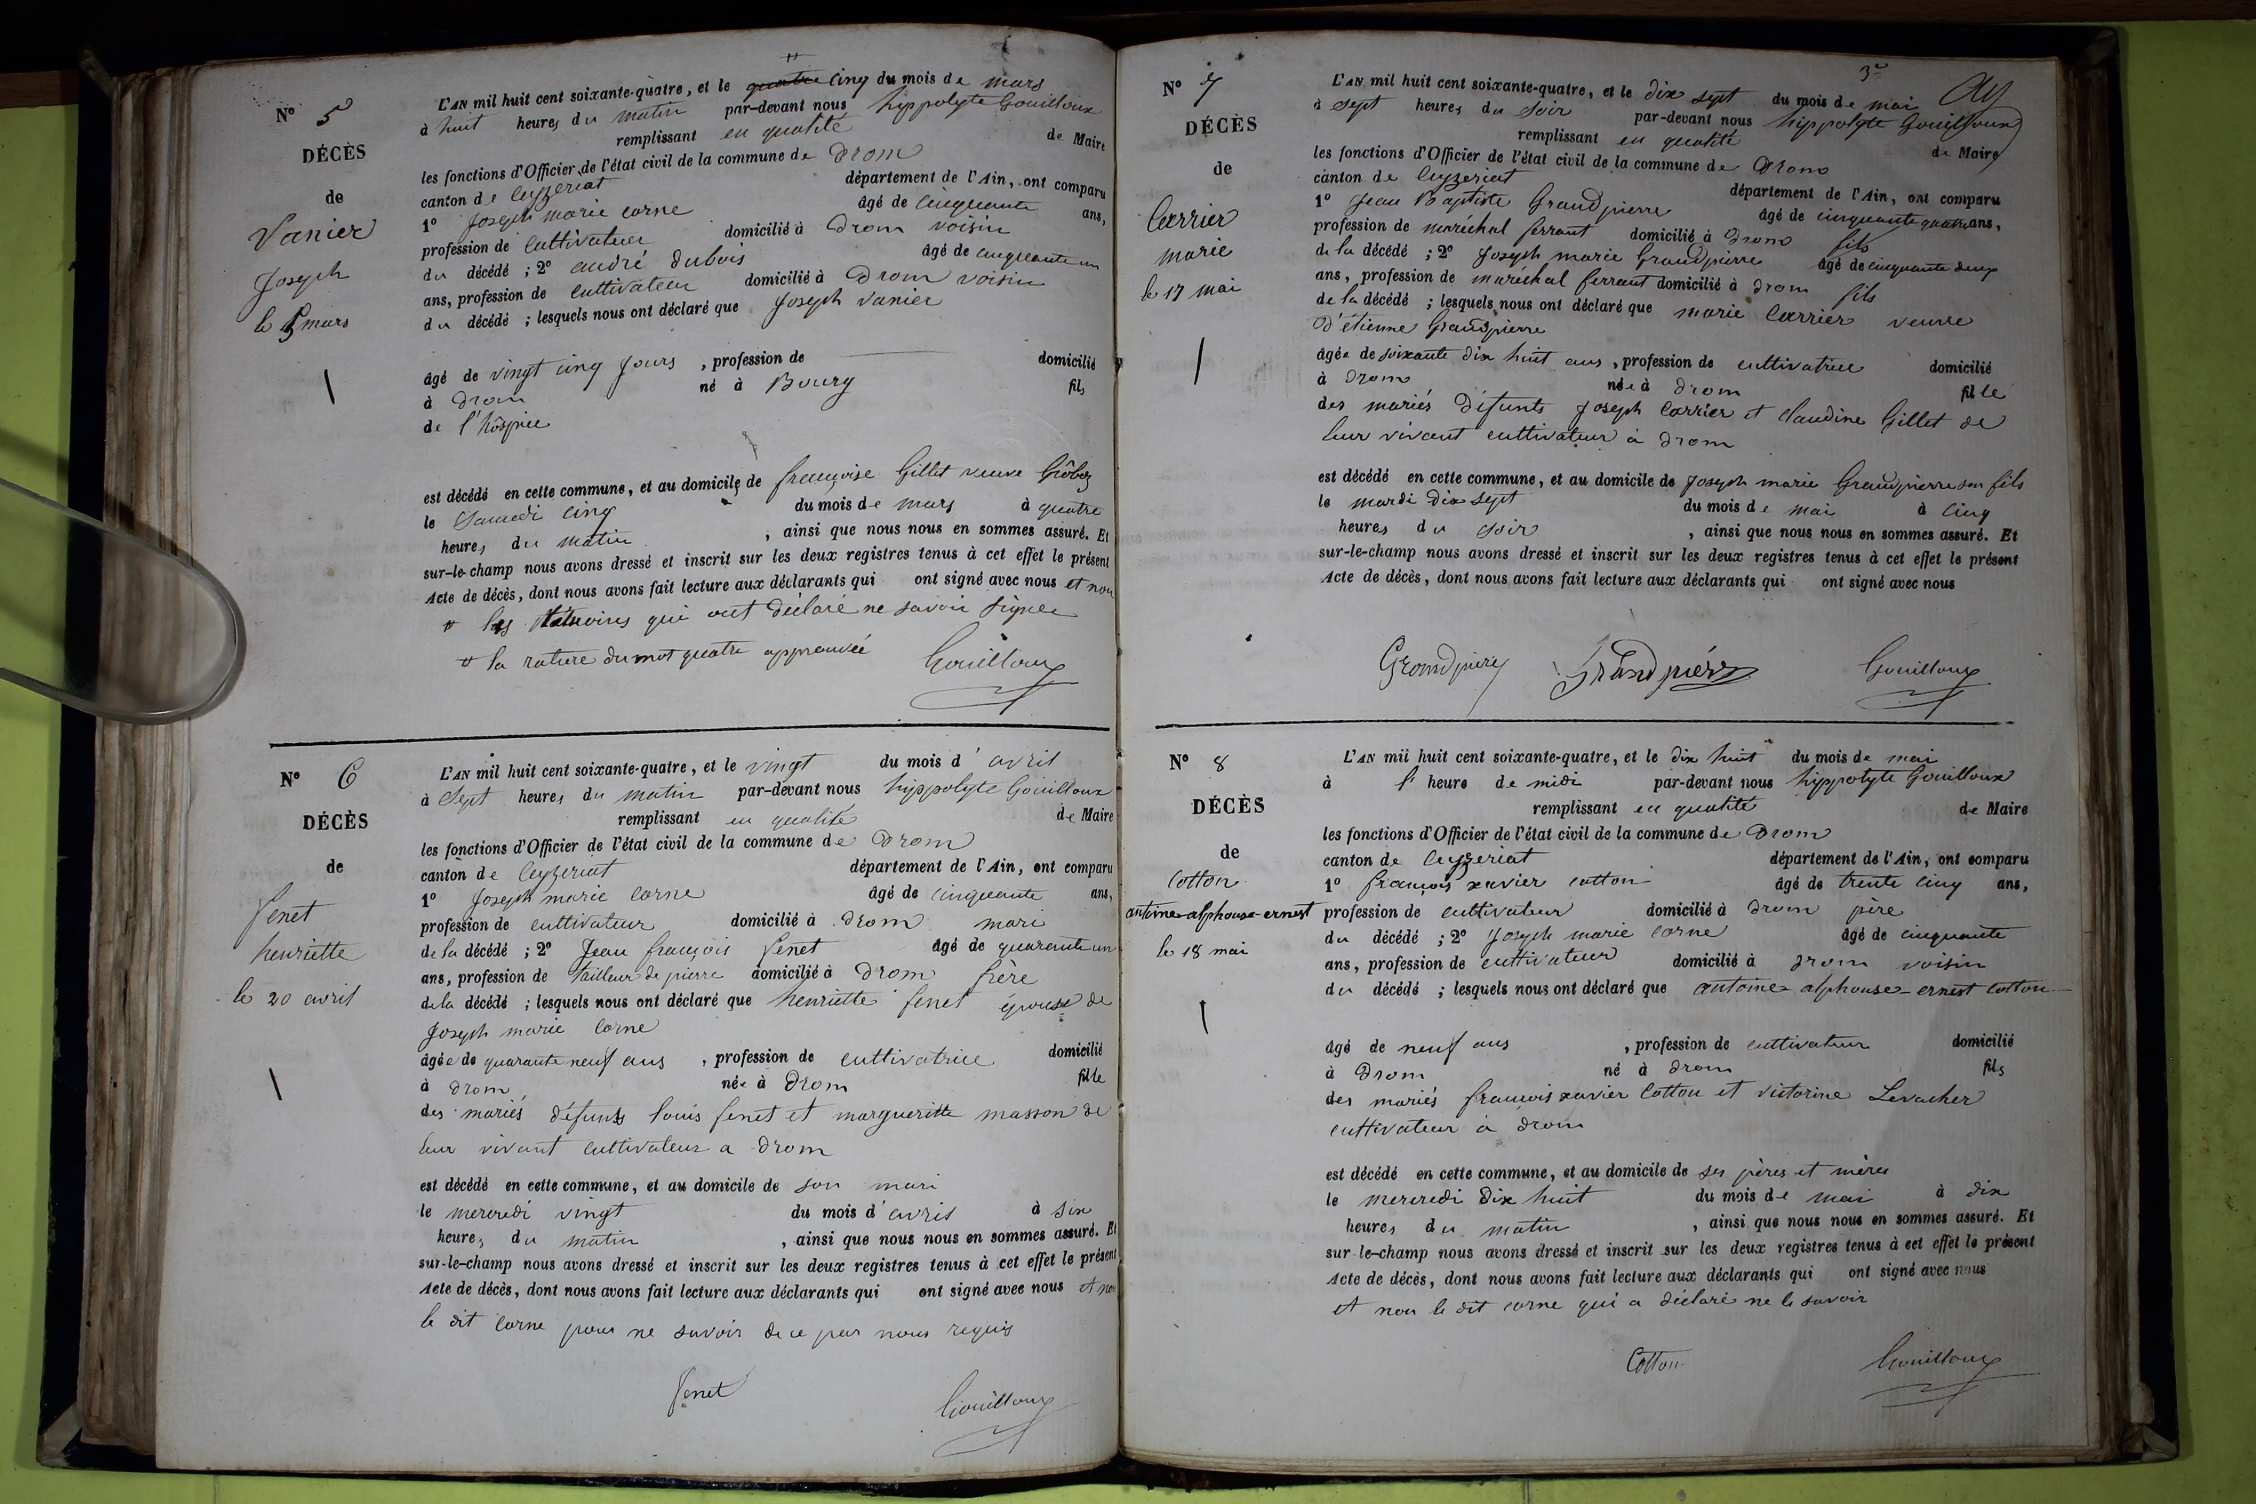 N° 5
DÉCÈS
de
Vanier
Joseph
le 5 mars
L'AN mil huit cent soixante-quatre, et le quatre cinq du mois de mars
à huit heures du matin par-devant nous hippolyte Gouilloux
remplissant en qualité de Maire
les fonctions d'Officier de l'état civil de la commune de Drom
canton de Ceyzeriat département de l'Ain, ont comparu
1° Joseph marie Corne âgé de cinquante ans,
profession de cultivateur domicilié à Drom voisin
du décédé ; 2° andré dubois âgé de cinquante un
ans, profession de cultivateur domicilié à Drom voisin
du décédé ; lesquels nous ont déclaré que Joseph Vanier
âgé de vingt cinq jours , profession de domicilié
à Drom né à Bourg fils
de l'hôspice
est décédé en cette commune, et au domicile de françoise Gillet veuve Grôboz
le Samedi cinq du mois de mars à quatre
heures du matin , ainsi que nous nous en sommes assuré. Et
sur-le-champ nous avons dressé et inscrit sur les deux registres tenus à cet effet le présent
Acte de décès, dont nous avons fait lecture aux déclarants qui ont signé avec nous et non
les témoins qui ont déclaré ne savoir signer
la rature du mot quatre approuvée
Gouilloux
N° 6
DÉCÈS
de
fenet
henriette
le 20 avril
L'AN mil huit cent soixante-quatre, et le vingt du mois d'avril
à Sept heures du matin par-devant nous hippolyte Gouilloux
remplissant en qualité de Maire
les fonctions d'Officier de l'état civil de la commune de Drom
canton de Ceyzeriat département de l'Ain, ont comparu
1° Joseph marie Corne âgé de cinquante ans,
profession de cultivateur domicilié à Drom mari
de la décédé ; 2° Jean françois fenet âgé de quarante un
ans, profession de tailleur de pierre domicilié à Drom frère
de la décédé ; lesquels nous ont déclaré que henriette fenet épouse de
Joseph marie Corne
âgée de quarante neuf ans , profession de cultivatrice domicilié
à Drom née à Drom fille
des mariés défunts louis fenet et margueritte masson de
leur vivant cultivateur a Drom
est décédé en cette commune, et au domicile de son mari
le mercredi vingt du mois d'avril à six
heures du matin , ainsi que nous nous en sommes assuré. Et
sur-le-champ nous avons dressé et inscrit sur les deux registres tenus à cet effet le présent
Acte de décès, dont nous avons fait lecture aux déclarants qui ont signé avec nous et non
le dit Corne pour ne savoir de ce par nous requis
fenet Gouilloux
3e
N° 7
DÉCÈS
de
Carrier
marie
le 17 mai
L'AN mil huit cent soixante-quatre, et le dix sept du mois de mai
à Sept heures du soir par-devant nous hippolyte Gouilloux
remplissant en qualité de Maire
les fonctions d'Officier de l'état civil de la commune de Drom
canton de Ceyzeriat département de l'Ain, ont comparu
1° Jean Baptiste Grandpierre âgé de cinquante quatre ans,
profession de maréchal ferrant domicilié à Drom fils
de la décédé ; 2° Joseph marie Grandpierre âgé de cinquante deux
ans, profession de maréchal ferrant domicilié à Drom fils
de la décédé ; lesquels nous ont déclaré que marie Carrier veuve
d'étienne Grandpierre
âgée de soixante dix huit ans , profession de cultivatrice domicilié
à Drom née à Drom fille
des mariés défunts Joseph Carrier et Claudine Gillet de
leur vivant cultivateur à Drom
est décédé en cette commune, et au domicile de Joseph marie Grandpierre son fils
le mardi dix sept du mois de mai à cinq
heures du soir , ainsi que nous nous en sommes assuré. Et
sur-le-champ nous avons dressé et inscrit sur les deux registres tenus à cet effet le présent
Acte de décès, dont nous avons fait lecture aux déclarants qui ont signé avec nous
Grandpierre Grandpierre Gouilloux
N° 8
DÉCÈS
de
Cotton
antoine-alphonse-ernest
le 18 mai
L'AN mil huit cent soixante-quatre, et le dix huit du mois de mai
à l'heure de midi par-devant nous hippolyte Gouilloux
remplissant en qualité de Maire
les fonctions d'Officier de l'état civil de la commune de Drom
canton de Ceyzeriat département de l'Ain, ont comparu
1° françois xavier Cotton âgé de trente cinq ans,
profession de cultivateur domicilié à Drom père
du décédé ; 2° Joseph marie Corne âgé de cinquante
ans, profession de cultivateur domicilié à Drom voisin
du décédé ; lesquels nous ont déclaré que antoine-alphonse-ernest Cotton
âgé de neuf ans , profession de cultivateur domicilié
à Drom né à Drom fils
des mariés françois xavier Cotton et victorine Levacher
cultivateur à Drom
est décédé en cette commune, et au domicile de ses pères et mères
le mercredi dix huit du mois de mai à dix
heures du matin , ainsi que nous nous en sommes assuré. Et
sur-le-champ nous avons dressé et inscrit sur les deux registres tenus à cet effet le présent
Acte de décès, dont nous avons fait lecture aux déclarants qui ont signé avec nous
et non le dit Corne qui a déclaré ne le savoir
Cotton Gouilloux